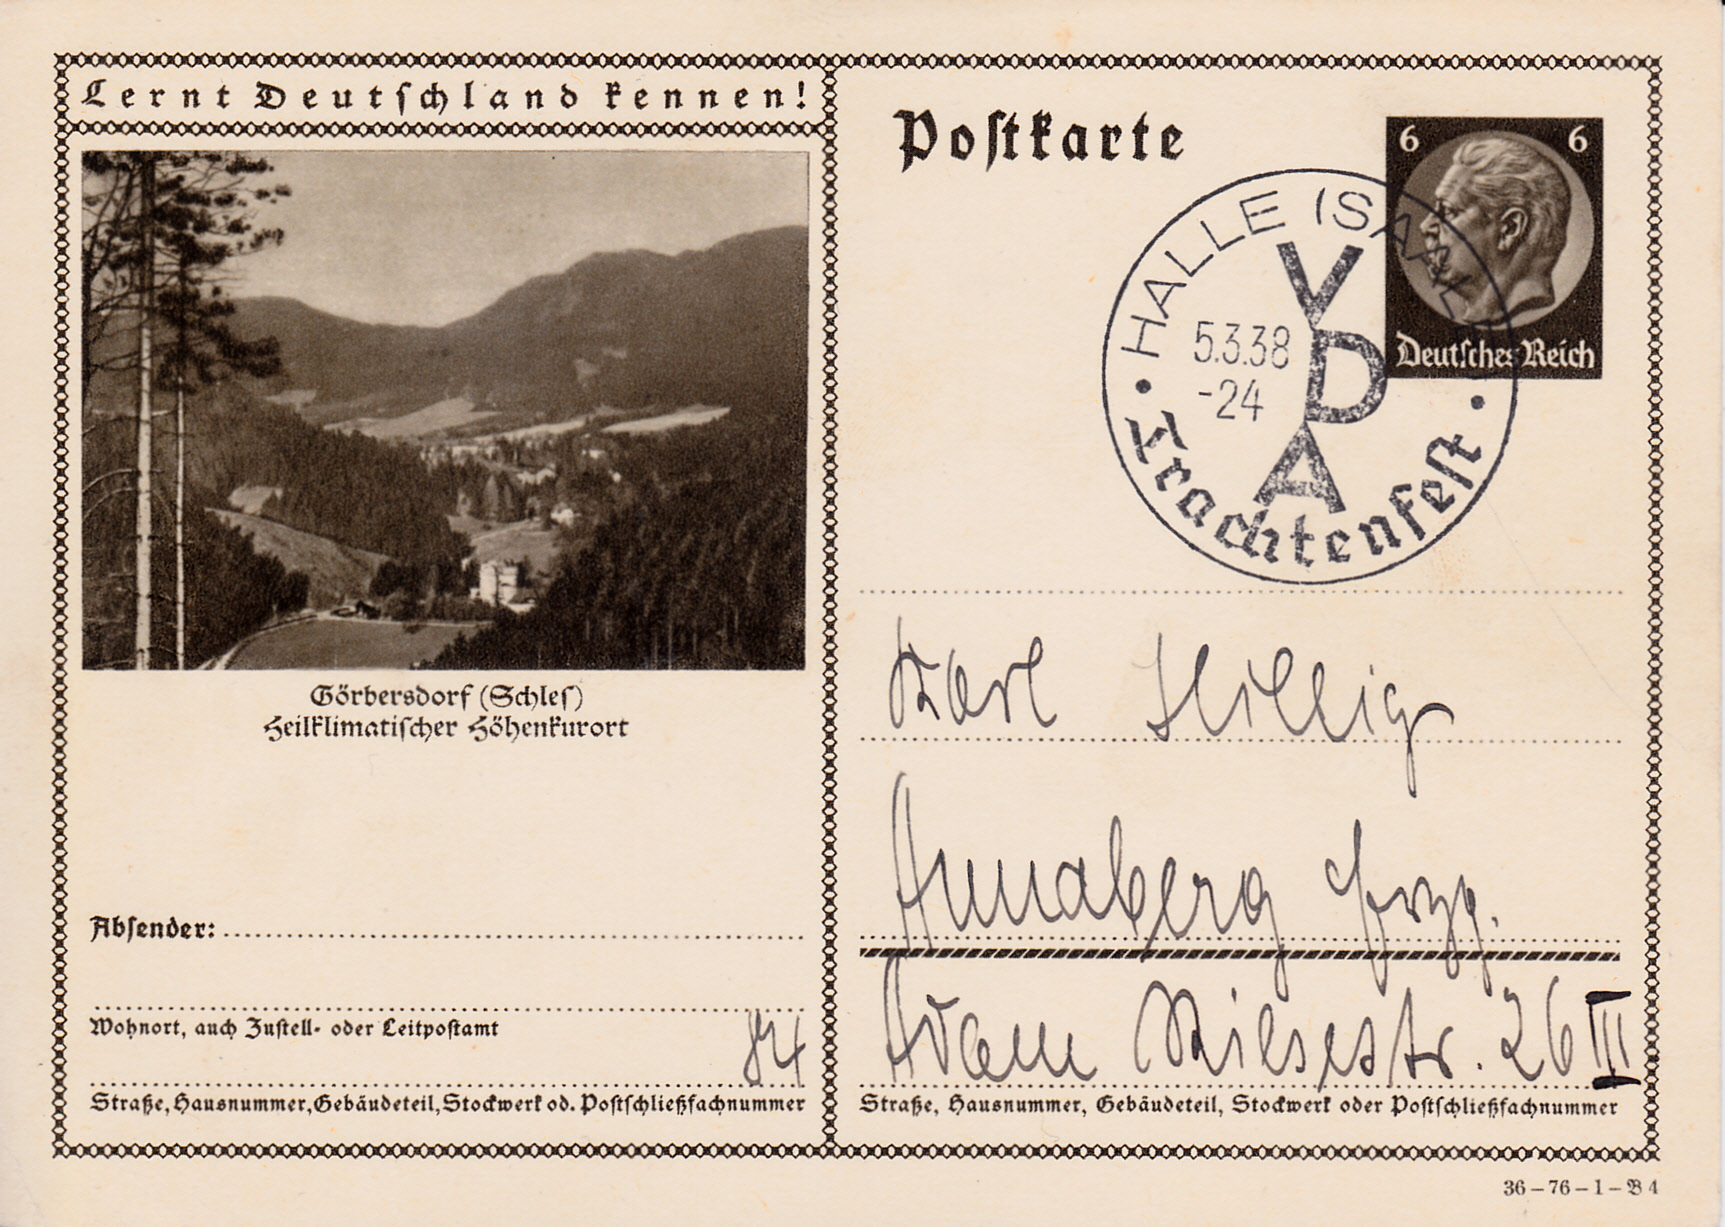 Lernt Deutschland kennen!
Görbersdorf (Schles)
Heilklimatischer Höhenkurort
Absender:
Wohnort, auch Zustell- oder Leitpostamt
Straße, Hausnummer, Gebäudeteil, Stockwerk od. Postschließfachnummer
Postkarte
6 6
Deutsches Reich
HALLE (SAALE)
VDA
5.3.38
-24
Trachtenfest
Karl Hillig
Annaberg Erzg.
Adam Riesestr. 26 III
Straße, Hausnummer, Gebäudeteil, Stockwerk oder Postschließfachnummer
36-76-1-B 4